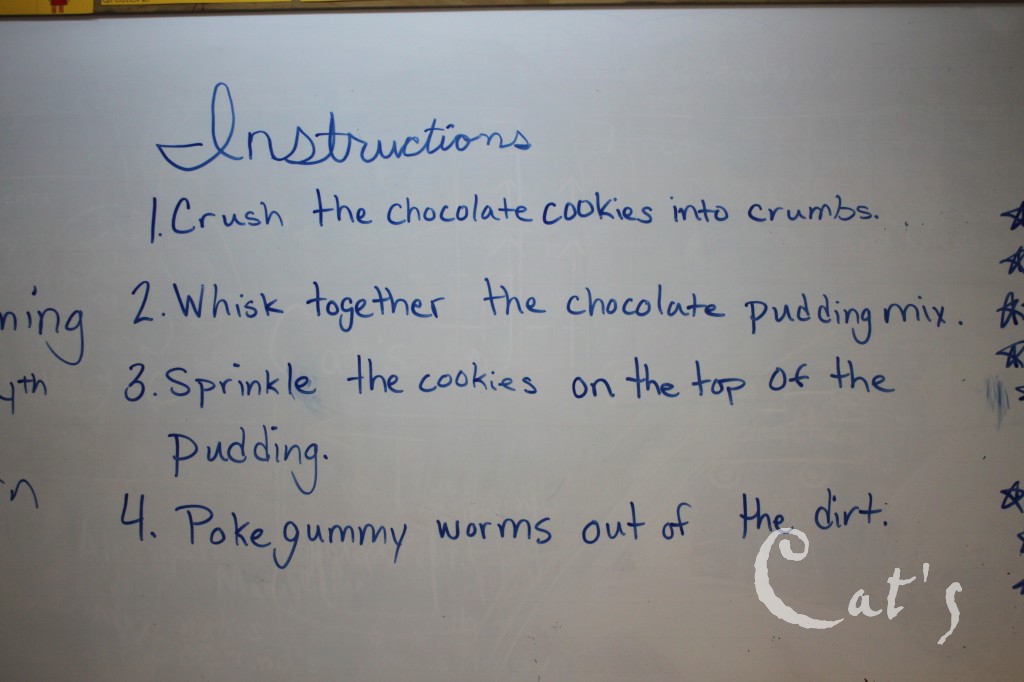 Instructions
1. Crush the chocolate cookies into crumbs.
2. Whisk together the chocolate pudding mix.
3. Sprinkle the cookies on the top of the
pudding.
4. Poke gummy worms out of the dirt.
ning
4th
Cat's